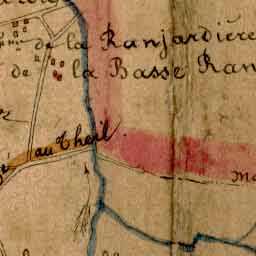 de la Ranjardiére
de la Basse Ran
au theil.